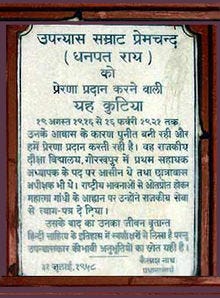 उपन्यास सम्राट प्रेमचन्द
(धनपत राय)
को
प्रेरणा प्रदान करने वाली
यह कुटिया
१९ अगस्त १९१६ से १६ फर्वरी १९२१ तक
उनके आवास के कारण पुनीत बनी रही और
हमें प्रेरणा प्रदान करती रही है। वह राजकीय
दीक्षा विद्यालय, गोरखपुर में प्रथम सहायक
अध्यापक के पद पर आसीन थे तथा छात्रावास
अधीक्षक भी थे। राष्ट्रीय भावनाओं से ओतप्रोत होकर
महात्मा गांधी के आह्वान पर उन्होंने राजकीय सेवा
से त्याग-पत्र दे दिया।
उसके बाद का उनका जीवन वृतान्त
हिन्दी साहित्य के इतिहास में स्वर्णाक्षरों में लिखा है परन्तु
उपन्यासकार की भावी अनुभूतियों का स्रोत यही है।
जुलाई, १९५८
नाथ